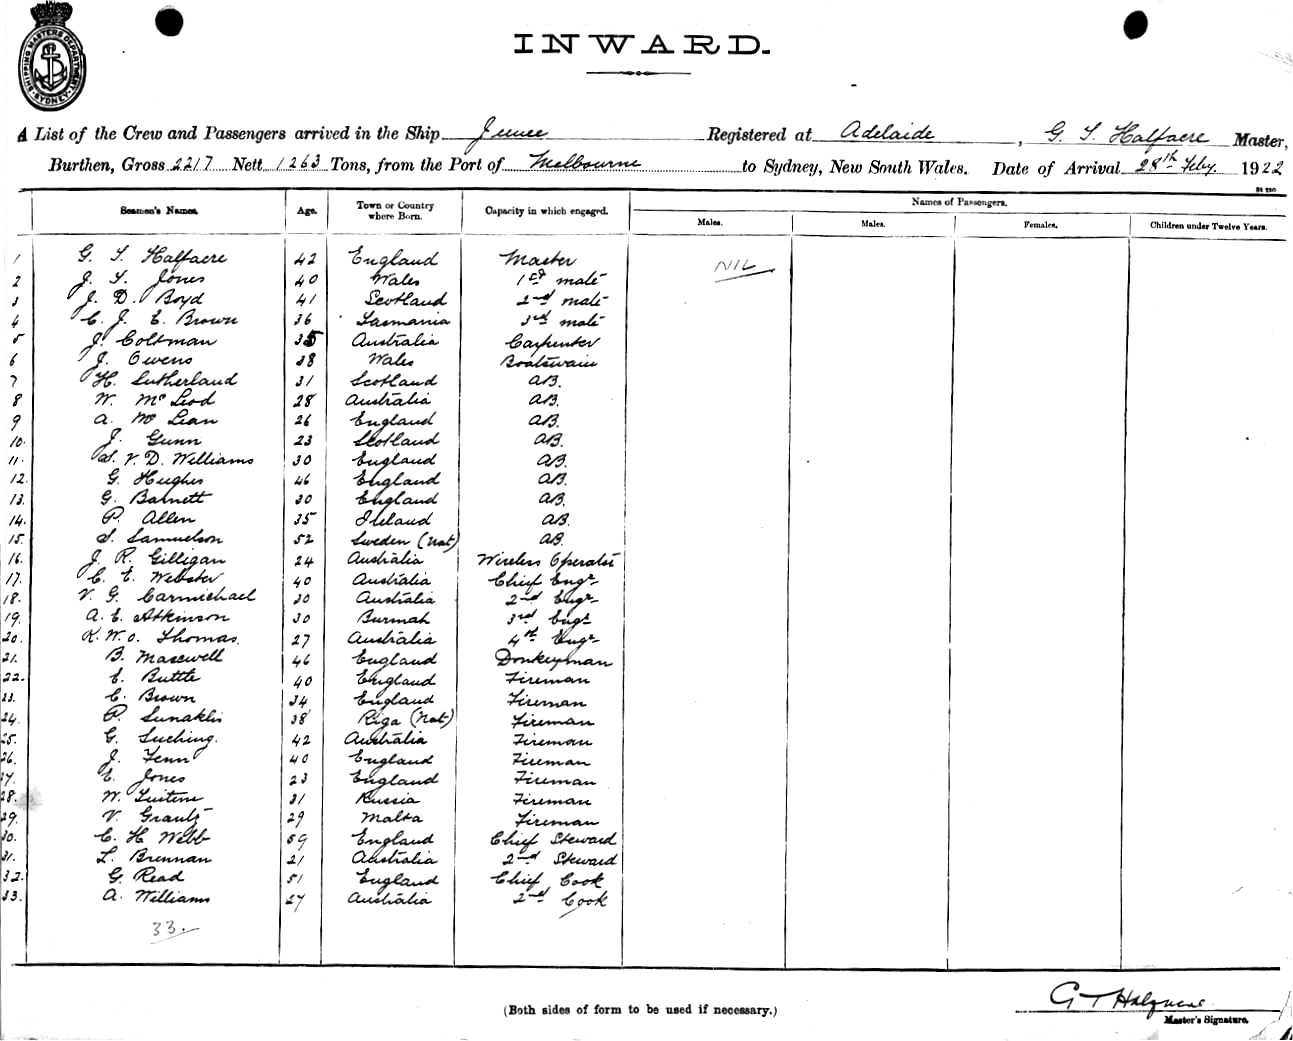 SHIPPING MASTERS DEPARTMENT
SYDNEY
INWARD.
A List of the Crew and Passengers arrived in the Ship Junee Registered at Adelaide, G. T. Halfacre Master,
Burthen, Gross 2217 Nett 1263 Tons, from the Port of Melbourne to Sydney, New South Wales. Date of Arrival 28th Feby. 1922
Seamen's Names. Age. Town or Country where Born. Capacity in which engaged. Names of Passengers.
Males. Males. Females. Children under Twelve Years.
1 G. T. Halfacre 42 England Master NIL
2 J. T. Jones 40 Wales 1st mate
3 J. D. Boyd 41 Scotland 2nd mate
4 C. J. E. Brown 36 Tasmania 3rd mate
5 J. Coltman 35 Australia Carpenter
6 J. Owens 38 Wales Boatswain
7 H. Sutherland 31 Scotland AB.
8 W. McLeod 28 Australia AB.
9 A. McLean 26 England AB.
10. J. Gunn 23 Scotland AB.
11. S. V. D. Williams 30 England AB.
12. G. Hughes 46 England AB.
13. G. Barnett 30 England AB.
14. P. Allen 35 Ireland AB.
15. S. Samuelson 52 Sweden (Nat) AB.
16. J. R. Gilligan 24 Australia Wireless Operator
17. C. E. Webster 40 Australia Chief Engr
18. V. G. Carmichael 30 Australia 2nd Engr
19. A. E. Atkinson 30 Burmah 3rd Engr
20. K. W. O. Thomas. 27 Australia 4th Engr
21. B. Maxwell 46 England Donkeyman
22. E. Buttle 40 England Fireman
23. C. Brown 34 England Fireman
24. P. Sunaklis 38 Riga (Nat) Fireman
25. G. Suching. 42 Australia Fireman
26. J. Fenn 40 England Fireman
27. E. Jones 23 England Fireman
28. W. 31 Russia Fireman
29. V. Grantz 29 Malta Fireman
30. C. H Webb 59 England Chief Steward
31. L. Brennan 21 Australia 2nd Steward
32. G. Read 51 England Chief Cook
33. A. Williams 27 Australia 2nd Cook
33.
(Both sides of form to be used if necessary.)
G T Halfacre
Master's Signature.